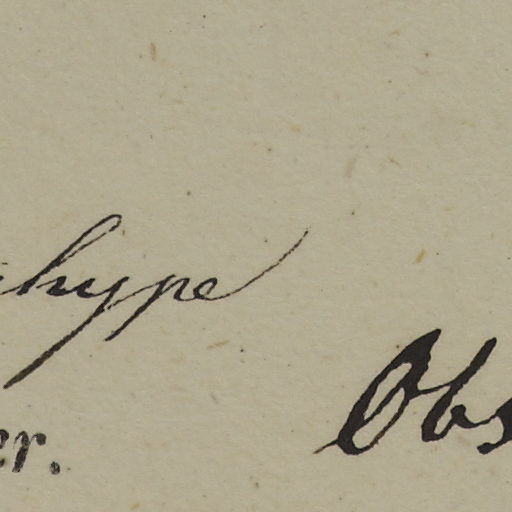 hype
er.
Obs